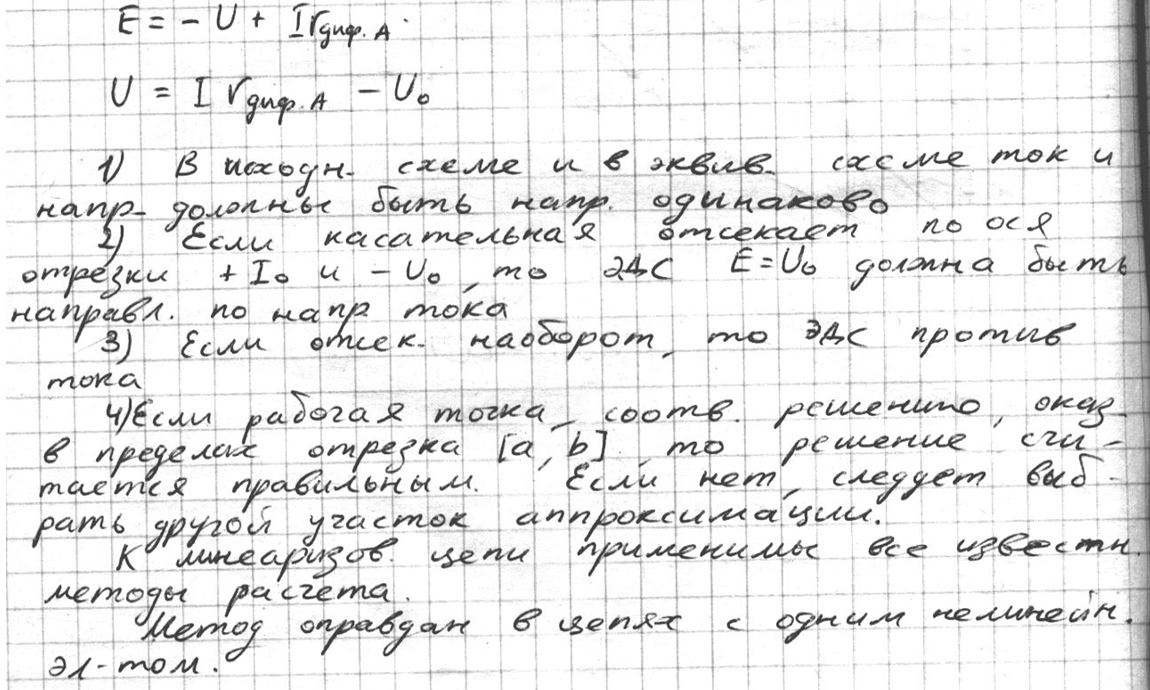 E = - U + I rдиф. А.
U = I rдиф. А - U₀
1) В исходн. схеме и в эквив. схеме ток и
напр- должны быть напр. одинаково
2) Если касательная отсекает по ося
отрезки + I₀ и - U₀, то ЭДС E = U₀ должна быть
направл. по напр тока
3) Если отсек. наоборот, то ЭДС против
тока
4) Если рабочая точка, соотв. решению, оказ-
в пределах отрезка [a, b] то решение счи-
тается правильным. Если нет, следдет выб-
рать другой участок аппроксимации.
К линеаризов. цепи применимы все известн.
методы расчета.
Метод оправдан в цепях с одним нелинейн.
эл-том.